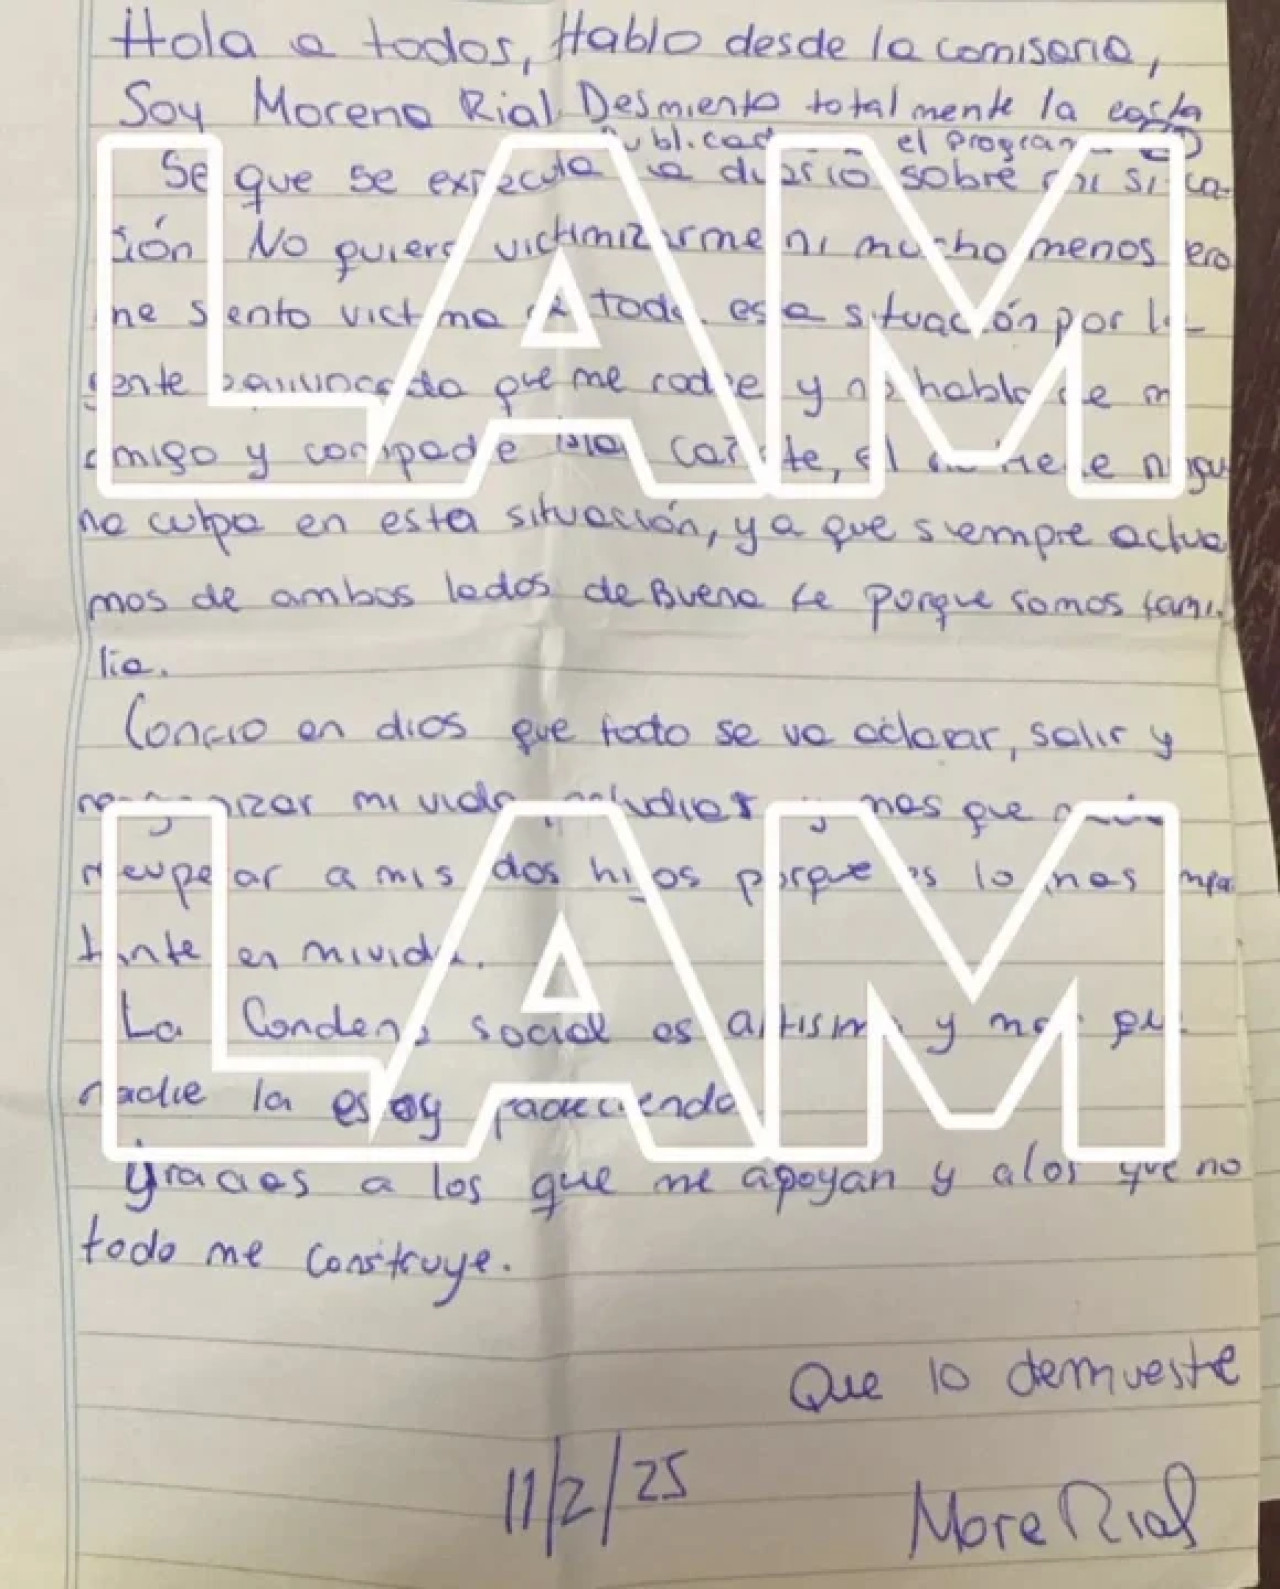 Hola a todos, Hablo desde la comisaria,
Soy Morena Rial. Desmiento totalmente la carta
el program
Se que se especula a diario sobre mi situa-
ción No quiero victimizarme ni mucho menos pero
me siento victima de toda esta situación por la
gente que me rodie y no hablo de mi
amigo y compadre él no tiene ningu
na culpa en esta situación, ya que siempre actua
mos de ambos lados de Buena fe porque somos fami-
lia.
Confio en dios que todo se va aclarar, salir y
mi vida, estudiar y mas que
recuperar a mis dos hijos porque es lo mas impor
tante en mi vida.
La Condena social es altisima y mas que
nadie la estoy padeciendo
Gracias a los que me apoyan y a los que no
todo me construye.
Que lo demueste
11/2/25
More Rial
LAM
LAM